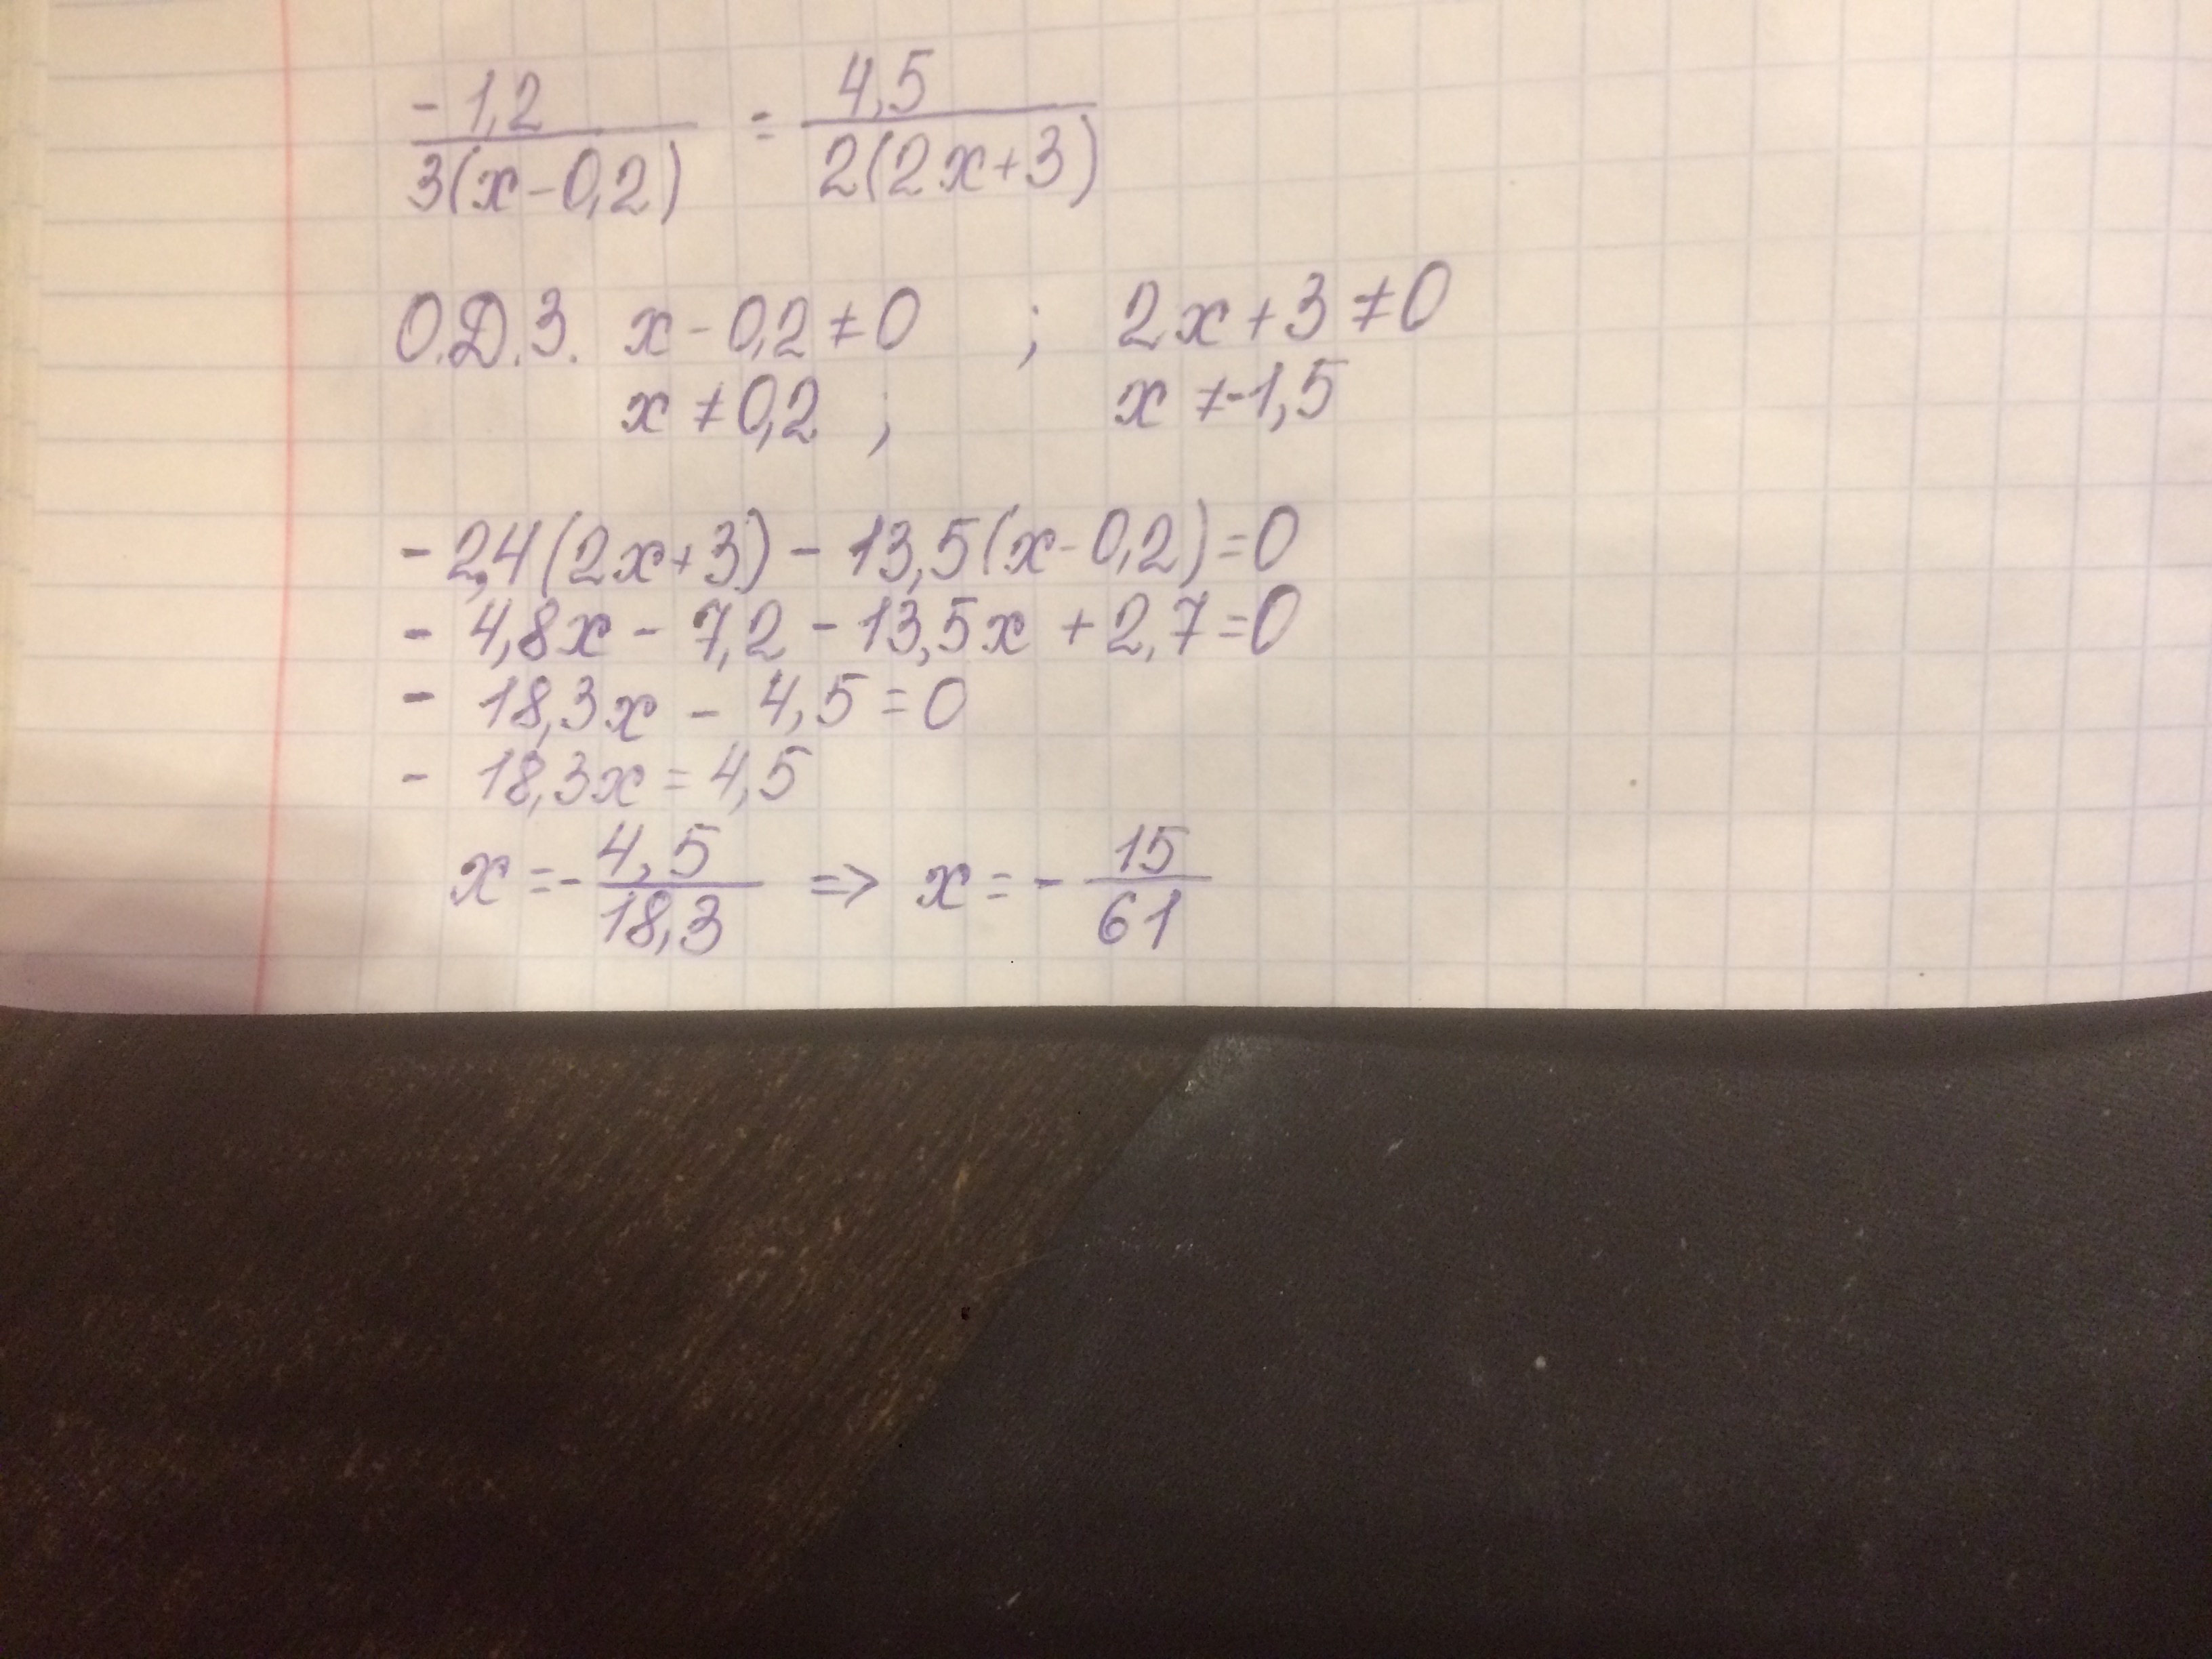 -1,2/3(x-0,2) = 4,5/2(2x+3)
О.Д.З. x-0,2≠0 ; 2x+3≠0
x≠0,2 ; x≠-1,5
-2,4(2x+3)-13,5(x-0,2)=0
-4,8x-7,2-13,5x+2,7=0
-18,3x-4,5=0
-18,3x=4,5
x=-4,5/18,3 => x=-15/61